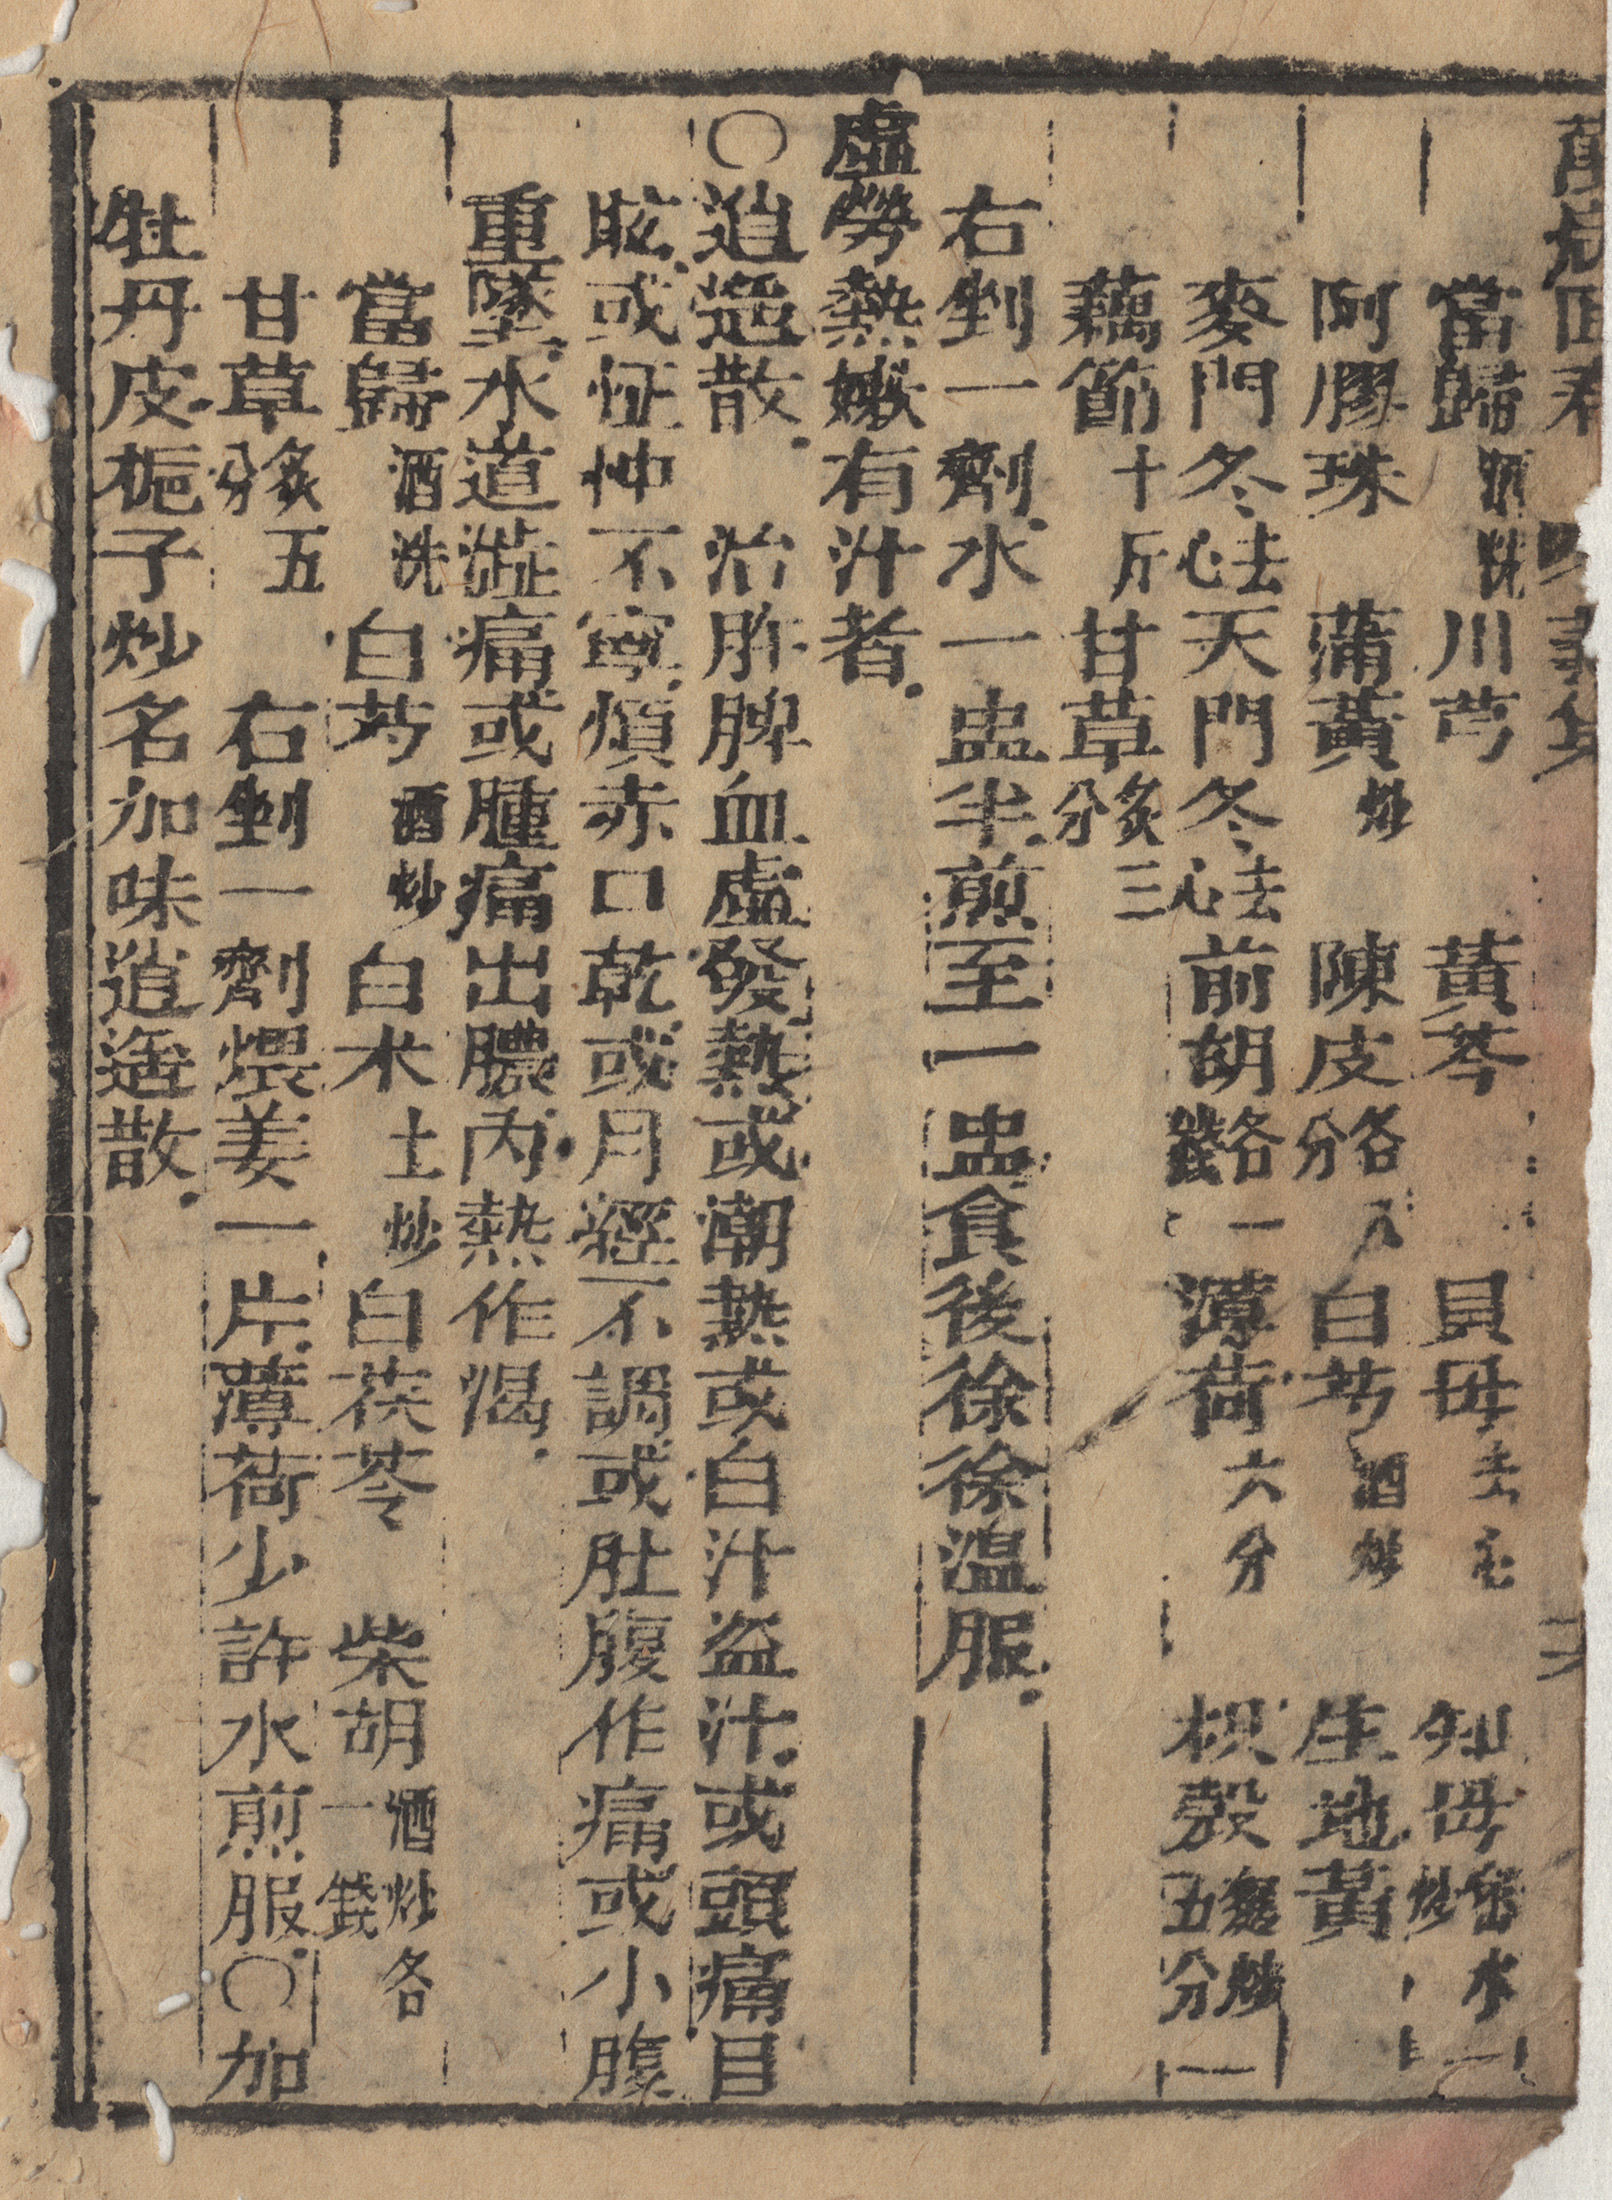 萬病回春
當歸酒洗 川芎 黃芩 貝母去心 知母蜜水炒
阿膠珠 蒲黃炒 陳皮各八分 白芍酒炒 生地黃
麥門冬去心 天門冬去心 前胡各一錢 薄荷六分 枳殼麩炒五分
藕節十斤 甘草炙三分
右剉一劑水一盅半煎至一盅食後徐徐溫服
虛勞熱嫩有汁者
〇逍遙散 治肝脾血虛發熱或潮熱或自汁盜汁或頭痛目
眩或怔忡不寧煩赤口乾或月經不調或肚腹作痛或小腹
重墜水道澁痛或腫痛出膿內熱作渴
當歸酒洗 白芍酒炒 白术土炒 白茯苓 柴胡酒炒各一錢
甘草炙五分 右剉一劑煨姜一片薄荷少許水煎服〇加
牡丹皮梔子炒名加味逍遙散